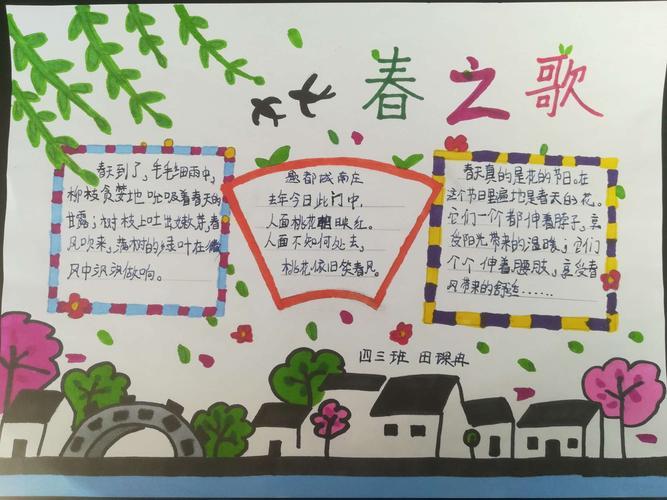 春之歌
春天到了,毛毛细雨中,
柳枝贪婪地吮吸着春天的
甘露;树枝上吐出嫩芽,春
风吹来,满树的绿叶在微
风中沨沨做响。
题都城南庄
去年今日此门中,
人面桃花相映红。
人面不知何处去,
桃花依旧笑春风。
春天真的是花的节日。在
这个节日里遍地是春天的花。
它们一个个都伸着脖子,享
受阳光带来的温暖;它们
个个伸着腰肢,享受春
风带来的舒适......
四三班 田琛冉